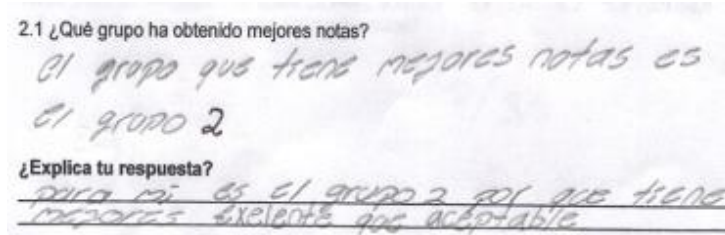 2.1 ¿Qué grupo ha obtenido mejores notas?
el grupo que tiene mejores notas es
el grupo 2
¿Explica tu respuesta?
para mi es el grupo 2 por que tiene
mejores exelente que aceptable